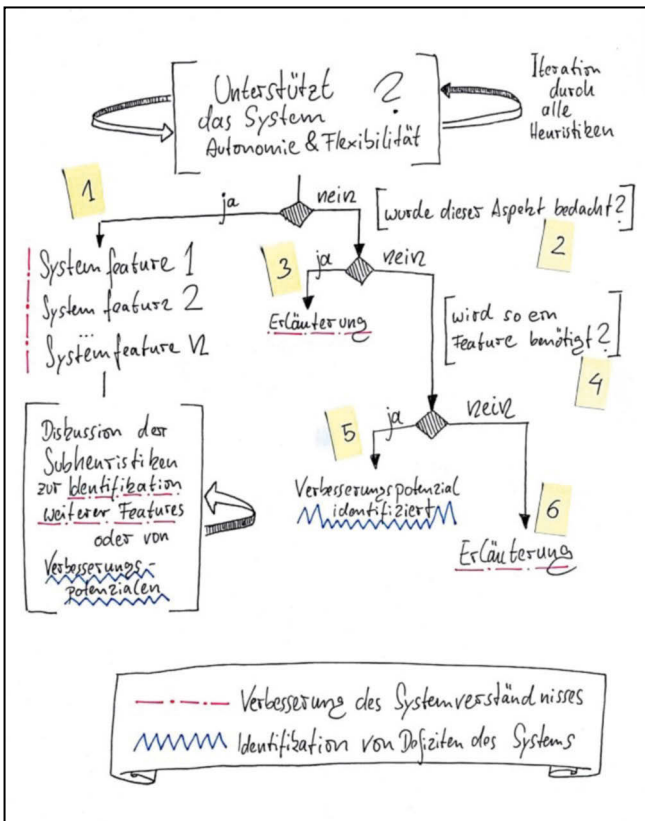 Unterstützt
das System ?
Autonomie & Flexibilität
Iteration
durch
alle
Heuristiken
1
ja
nein
[wurde dieser Aspekt bedacht?]
2
System feature 1
System feature 2
...
Systemfeature n
3
ja
nein
Erläuterung
[wird so ein
Feature benötigt?]
4
Diskussion der
Subheuristiken
zur Identifikation
weiterer Features
oder von
Verbesserungs-
potenzialen
5
ja
nein
Verbesserungspotenzial
identifiziert
6
Erläuterung
Verbesserung des Systemverständnisses
Identifikation von Defiziten des Systems